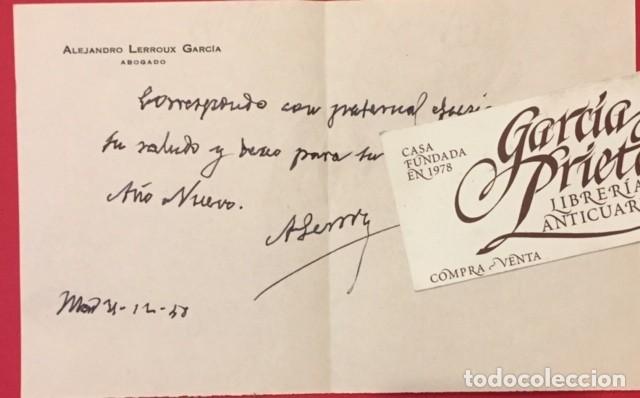 ALEJANDRO LERROUX GARCÍA
ABOGADO
Correspondo con fraternal
su saludo y deseo para su
Año Nuevo.
ALerroux
CASA
FUNDADA
EN 1978
García
Prieto
LIBRERÍA
ANTICUAR
COMPRA-VENTA
todocoleccion.net